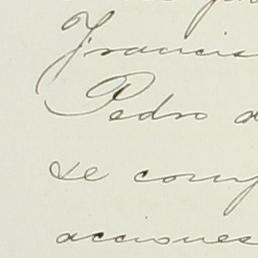 Francis
Pedro d
se comp
acciones